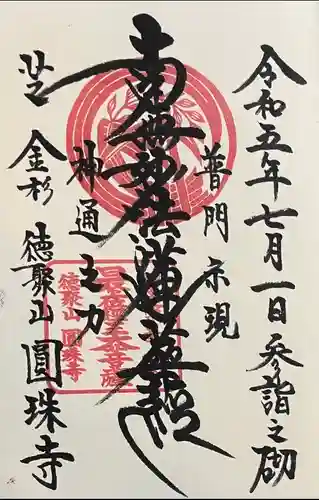 令和五年七月一日参詣之砌
普門示現
南無妙法蓮華経
神通之力
芝
金杉
徳聚山 圓珠寺
徳聚山 圓珠寺